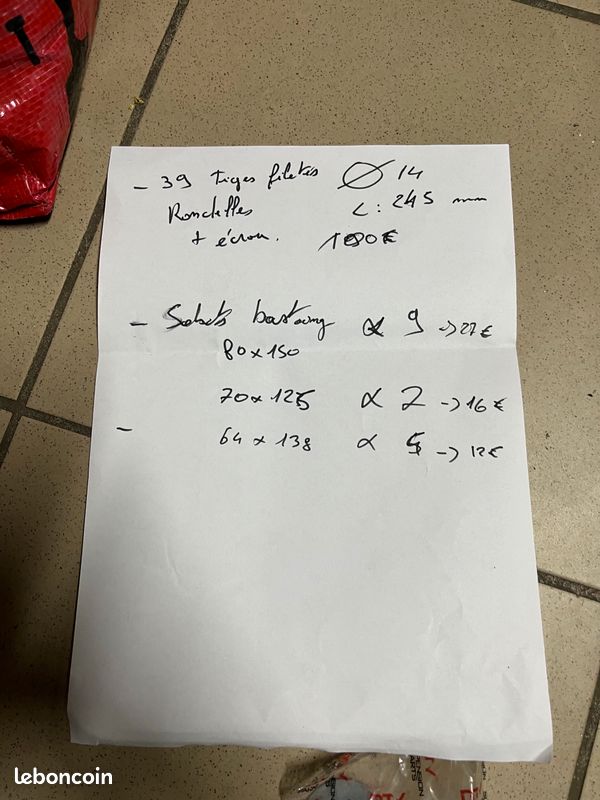 - 39 tiges filetés Ø 14
Rondelles L: 245 mm
+ écrou. 100€
- Sabots bastaing x 9 -> 27€
80 x 150
70 x 125 x 2 -> 16€
- 64 x 138 x 5 -> 12€
leboncoin